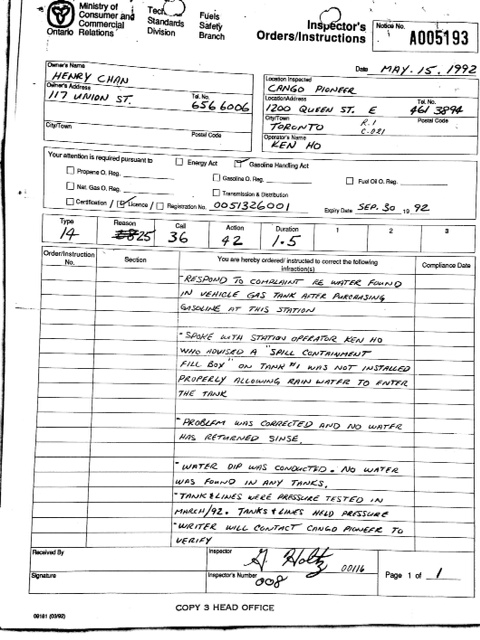 Ministry of
Consumer and
Commercial
Relations
Ontario
Standards
Division
Fuels
Safety
Branch
Inspector's
Orders/Instructions
Notice No.
A005193
Date MAY. 15. 1992
Owner's Name
HENRY CHAN
Owner's Address
117 UNION ST.
Tel. No.
656 6006
City/Town
Postal Code
Location Inspected
CANGO PIONEER
Location Address
1200 QUEEN ST. E
Tel. No.
461 3894
City/Town
TORONTO
R.1
C-021
Postal Code
Operator's Name
KEN HO
Your attention is required pursuant to
Energy Act
Gasoline Handling Act
Propane O. Reg.
Gasoline O. Reg.
Fuel Oil O. Reg.
Nat. Gas O. Reg.
Transmission & Distribution
Certification / Licence / Registration No. 0051326001
Expiry Date SEP. 30 19 92
Type
14
Reason
25
Call
36
Action
42
Duration
1.5
1
2
3
Order/Instruction
No.
Section
You are hereby ordered/ instructed to correct the following
infraction(s)
Compliance Date
- RESPOND TO COMPLAINT RE WATER FOUND
IN VEHICLE GAS TANK AFTER PURCHASING
GASOLINE AT THIS STATION
- SPOKE WITH STATION OPERATOR KEN HO
WHO ADVISED A "SPILL CONTAINMENT
FILL BOX" ON TANK #1 WAS NOT INSTALLED
PROPERLY ALLOWING RAIN WATER TO ENTER
THE TANK
- PROBLEM WAS CORRECTED AND NO WATER
HAS RETURNED SINSE.
- WATER DIP WAS CONDUCTED. NO WATER
WAS FOUND IN ANY TANKS.
- TANK & LINES WERE PRESSURE TESTED IN
MARCH/92. TANKS & LINES HELD PRESSURE
- WRITER WILL CONTACT CANGO PIONEER TO
VERIFY
Received By
Signature
Inspector
Holtz
00116
Inspector's Number
008
Page 1 of 1
COPY 3 HEAD OFFICE
09181 (03/92)